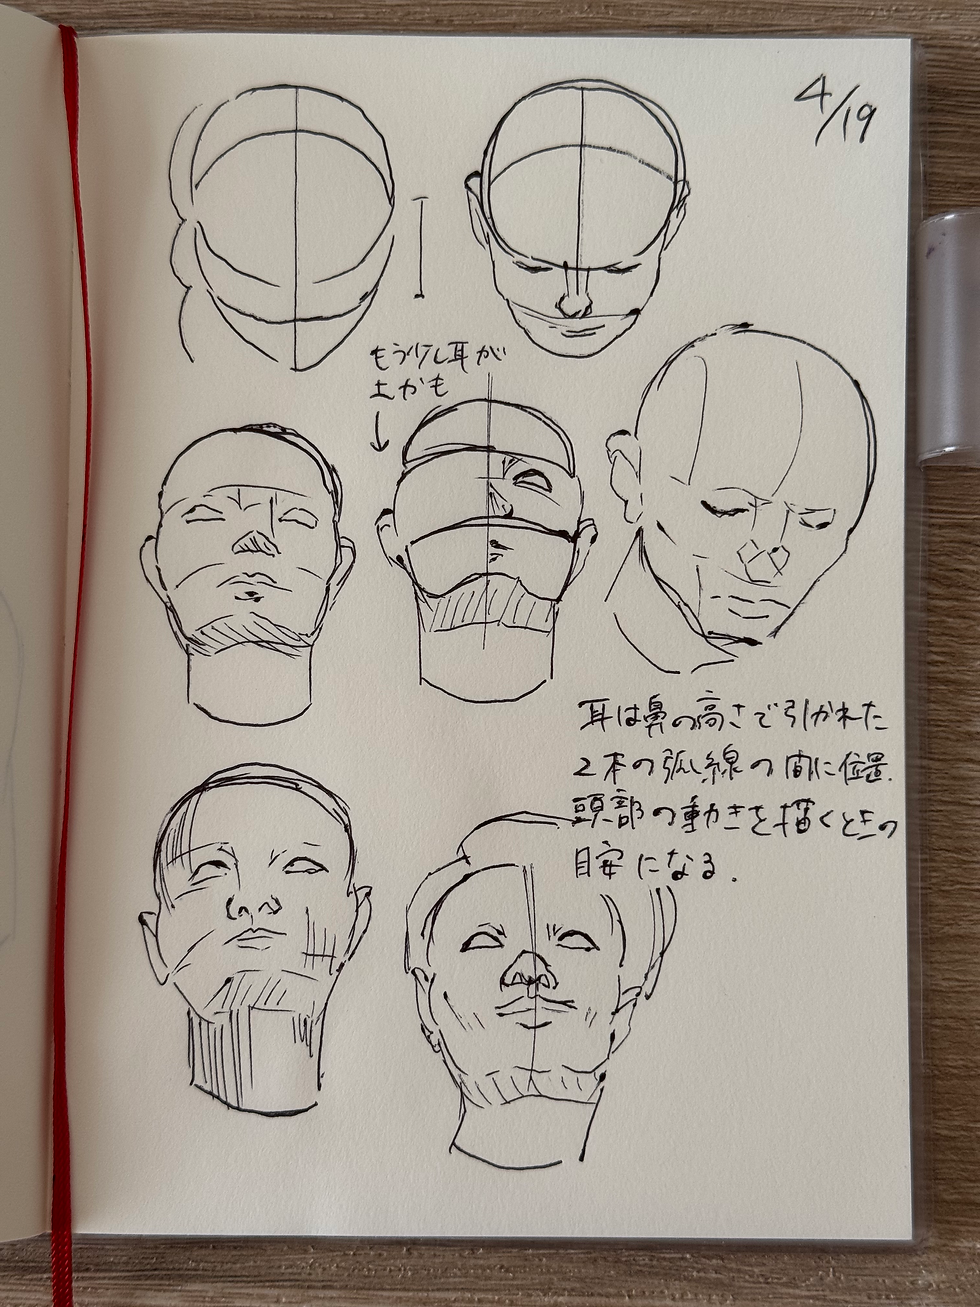 4/19
もう少し耳が
上かも
耳は鼻の高さで引かれた
2本の弧線の間に位置.
頭部の動きを描くときの
目安になる.